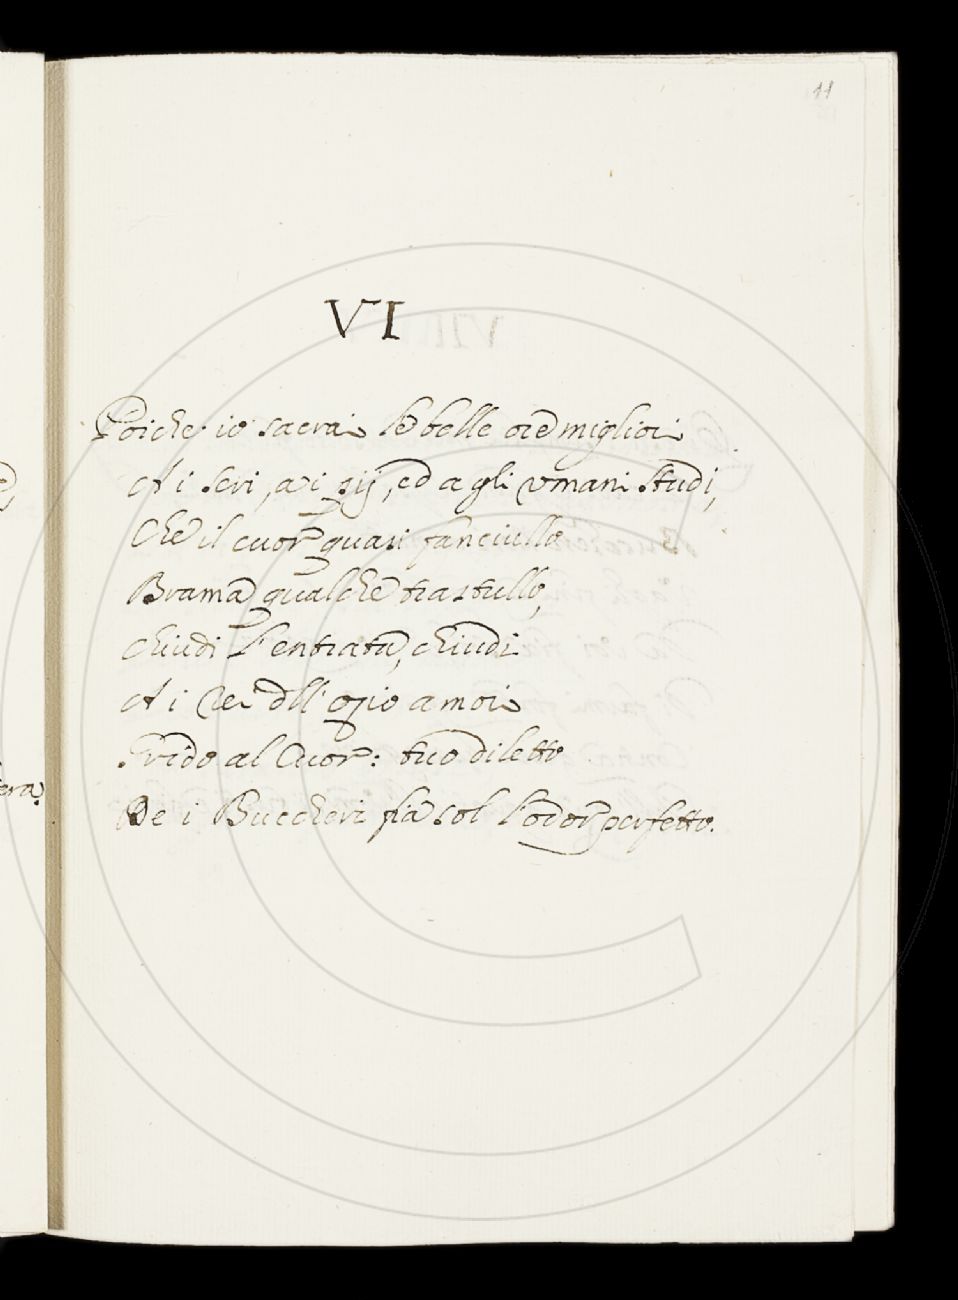 11
VI
Poiche io sacrai le belle ore migliori
A i seri, a i pij, ed a gli vmani studi,
Che il cuor quasi fanciullo
Brama qualche trastullo,
Chiudi l'entrata, chiudi
A i Re dell' ozio amori
Grido al Cuor: tuo diletto
De i Buccheri fia sol l'odor perfetto.
era.